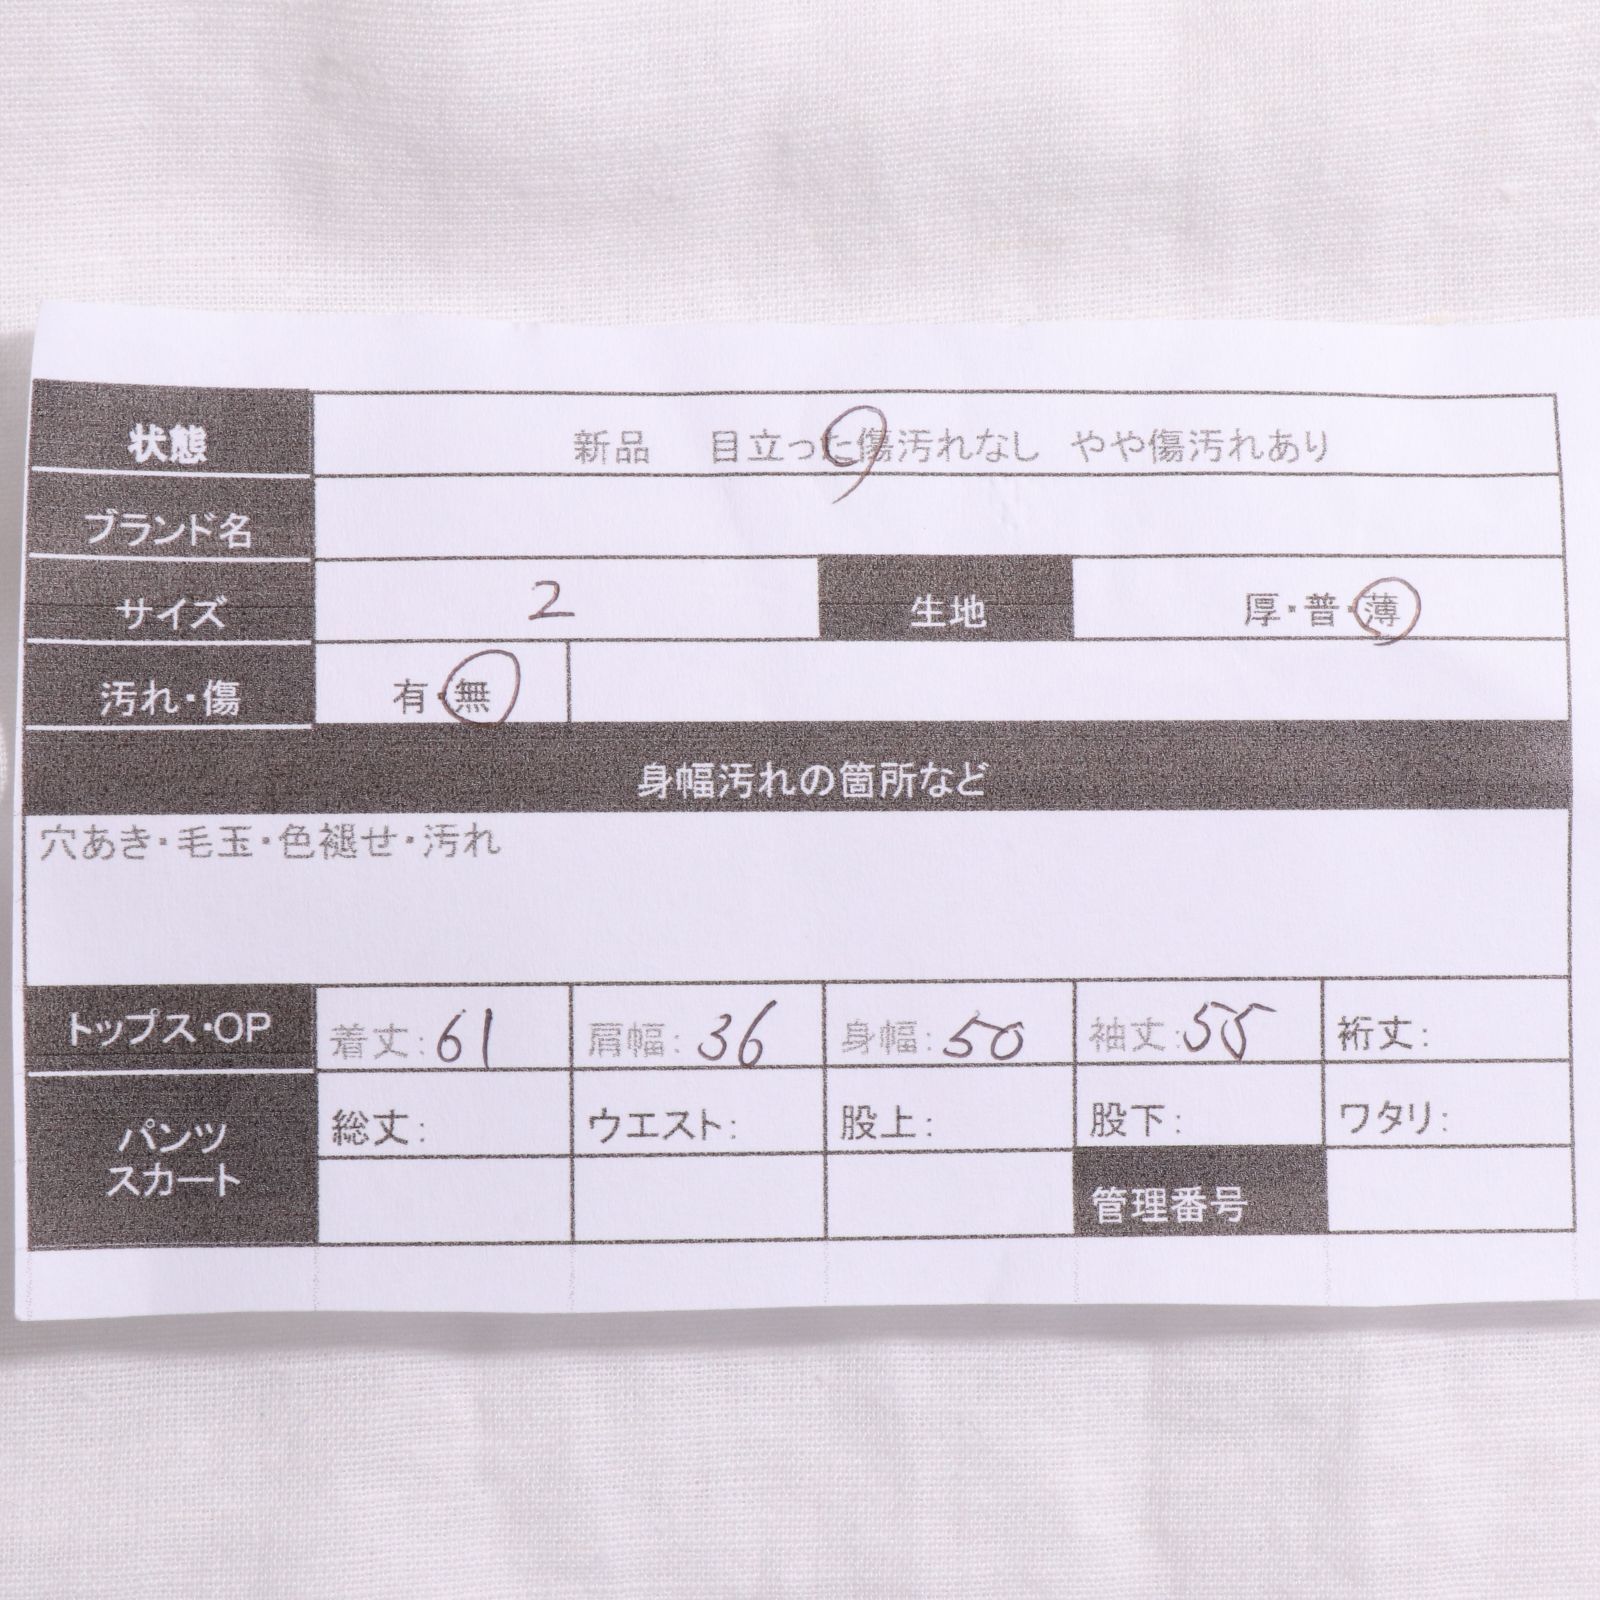 状態 新品 目立った傷汚れなし やや傷汚れあり
ブランド名
サイズ 2 生地 厚・普・薄
汚れ・傷 有・無
身幅汚れの箇所など
穴あき・毛玉・色褪せ・汚れ
トップス・OP 着丈:61 肩幅:36 身幅:50 袖丈:55 裄丈:
パンツ
スカート
総丈: ウエスト: 股上: 股下: ワタリ:
管理番号